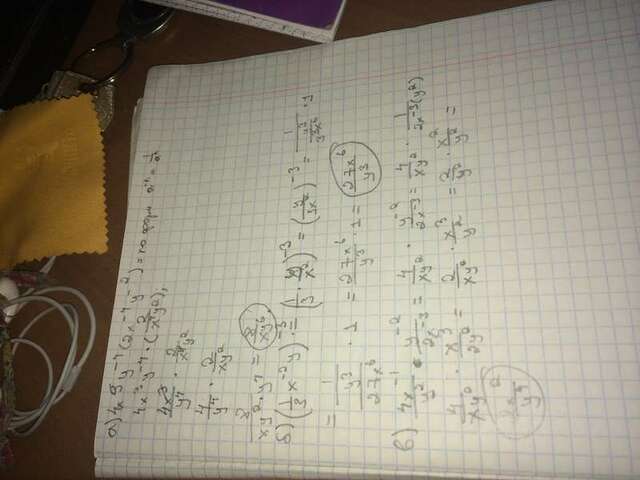 а) 4x³y⁻⁴(2x⁻⁴y⁻²) = по форм. a⁻ⁿ = 1/aⁿ
4x³ · y⁴ · (2/x⁴y²);
4x³/y⁴ · 2/x⁴y²
4/y⁴ · 2/xy²
8/xy² · y⁴ = 8/xy⁶
б) (1/3 x⁻²y)⁻³ = (1/3 · y/x²)⁻³ = (y/3x²)⁻³ = 1/(y³/3³x⁶) · y
= 1/(y³/27x⁶) · 1 = 27x⁶/y³ · 1 = 27x⁶/y³
в) 4x⁻¹/y² · y⁻²/2x⁻³ = 4/xy² · y⁻²/2x⁻³ = 4/xy² · 1/2x⁻³(y²)
4/xy² · x³/2y² = 2/xy² · x³/y² = 2/y² · x²/y² =
2x²/y⁴